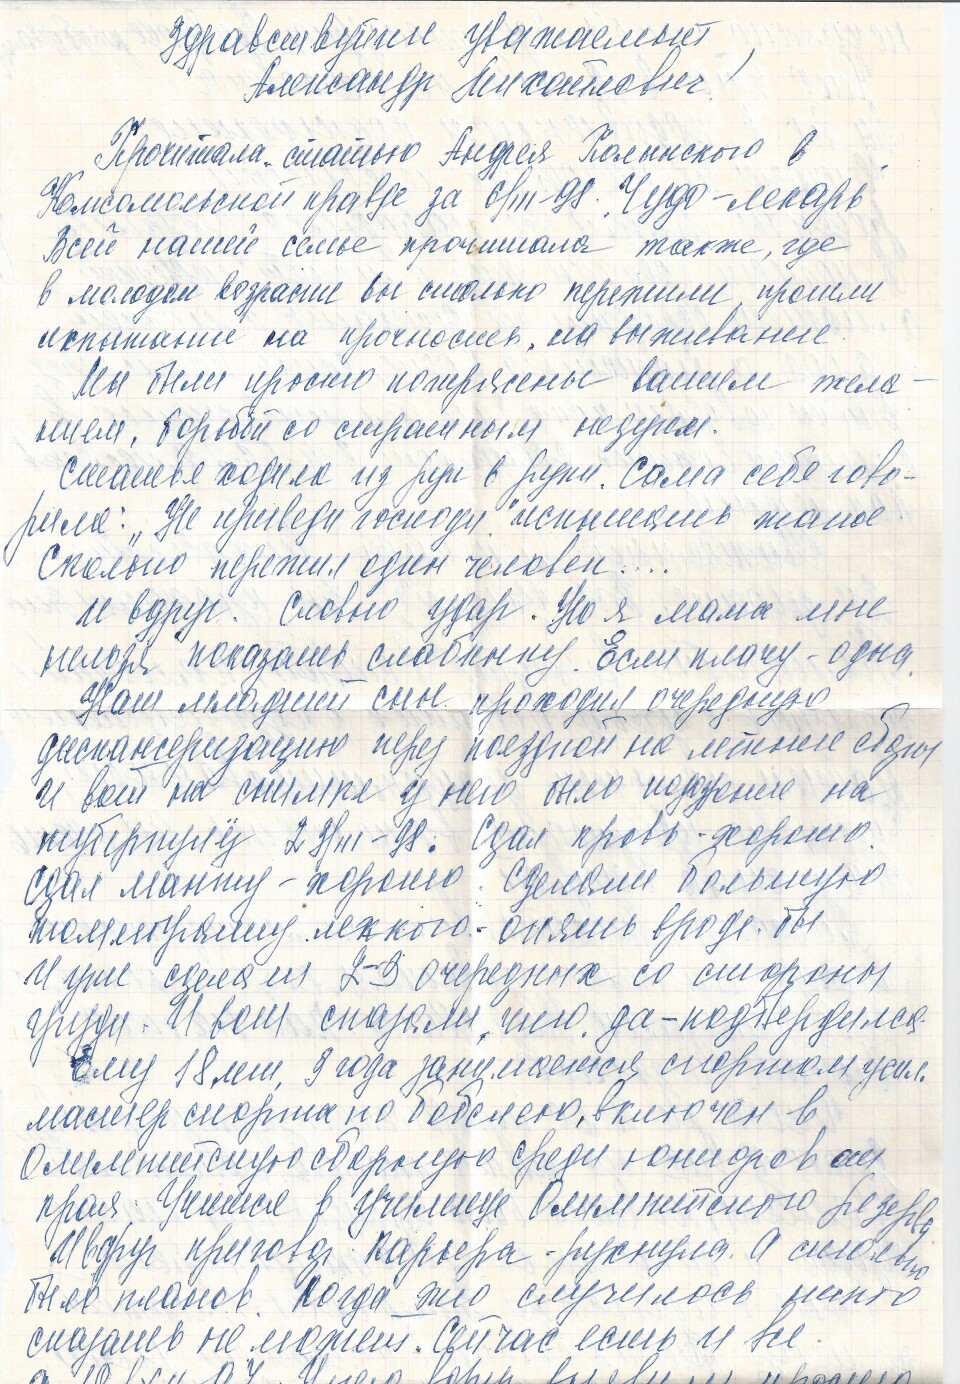 Здравствуйте уважаемый
Александр Михайлович!
Прочитала статью Андрея Полынского в
Комсомольской правде за 6/III-98. "Чудо-лекарь"
Всей нашей семье прочитала также, где
в молодом возрасте вы столько пережили, прошли
испытание на прочность, на выживание.
Мы были просто потрясены вашим жела-
нием, борьбой со страшным недугом.
Статья ходила из рук в руки. Сама себе гово-
рила: "Не приведи господи" испытать такое.
Сколько пережил один человек....
И вдруг. Словно удар. Но я мама мне
нельзя показать слабинку. Если плачу - одна.
Наш младший сын проходил очередную
диспансеризацию перед поездкой на летние сборы
И вот на снимке у него было подозрение на
туберкулёз 23/III-98. Сдал кровь - хорошо.
Сдал манту - хорошо. Сделали большую
томмограмму легкого - опять вроде бы
И уже сделали 2-3 очередных со стороны
груди. И вот сказали, что, да - подтвердился.
Ему 18 лет, 3 года занимается спортом
мастер спорта по бобслею, включен в
Олимпийскую сборную среди юниоров от
края. Учится в училище Олимпийского резерва
И вдруг приговор. Карьера - рухнула. А столько
было планов. Когда это случилось никто
сказать не может. Сейчас есть и все